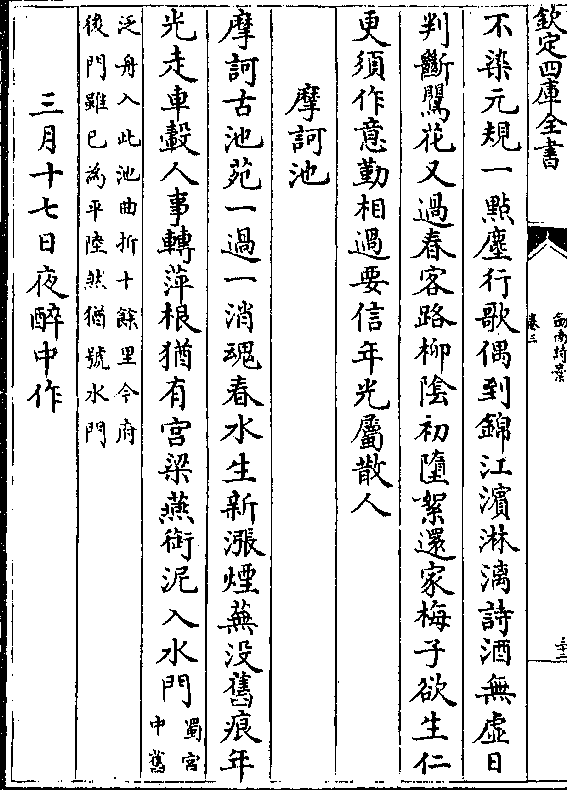 欽定四庫全書
劍南詩藁
卷三
不染元規一點塵行歌偶到錦江濱淋漓詩酒無虛日
判斷鸎花又過春客路柳陰初墮絮還家梅子欲生仁
更須作意勤相過要信年光屬散人
摩訶池
摩訶古池苑一過一消魂春水生新漲煙蕪没舊痕年
光走車轂人事轉萍根猶有宮梁燕銜泥入水門
蜀宮
中舊
泛舟入此池曲折十餘里今府
後門雖已為平陸然猶號水門
三月十七日夜醉中作